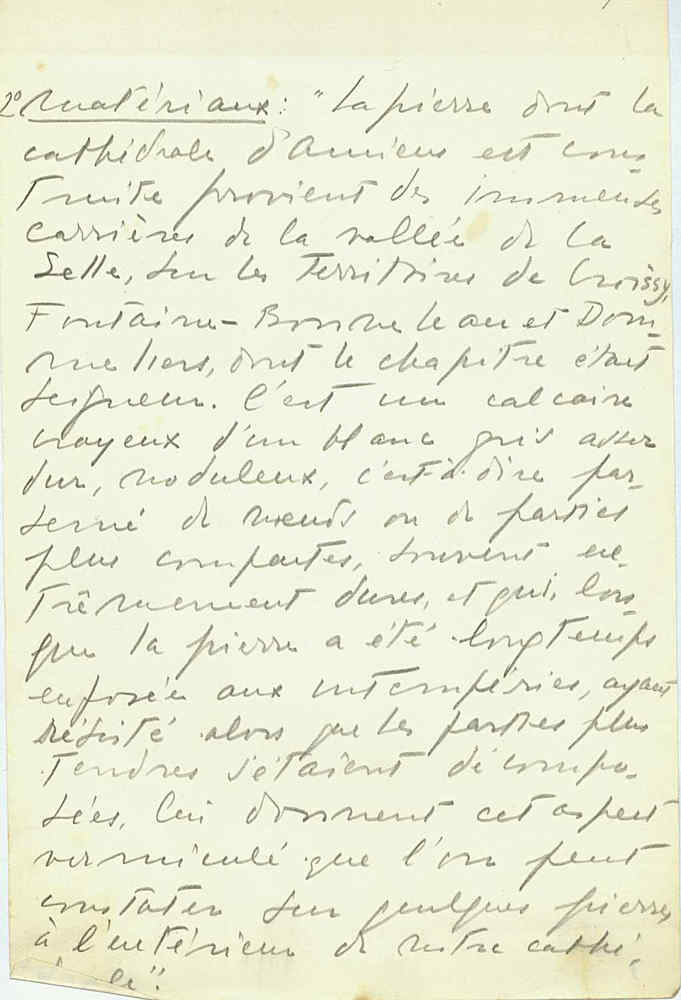 2° Matériaux : "La pierre dont la
cathédrale d'Amiens est cons-
truite provient des immenses
carrières de la vallée de la
Selle, sur les Territoires de Croissy,
Fontaine-Bonneleau et Dom-
meliers, dont le chapitre était
seigneur. C'est un calcaire
crayeux d'un blanc gris assez
dur, noduleux, c'est-à-dire par-
semé de nœuds ou de parties
plus compactes, souvent ex-
trêmement dures, et qui, lors-
que la pierre a été longtemps
exposée aux intempéries, ayant
résisté alors que les parties plus
tendres s'étaient décompo-
sées, lui donnent cet aspect
vermiculé que l'on peut
constater sur quelques pierres
à l'extérieur de notre cathé-